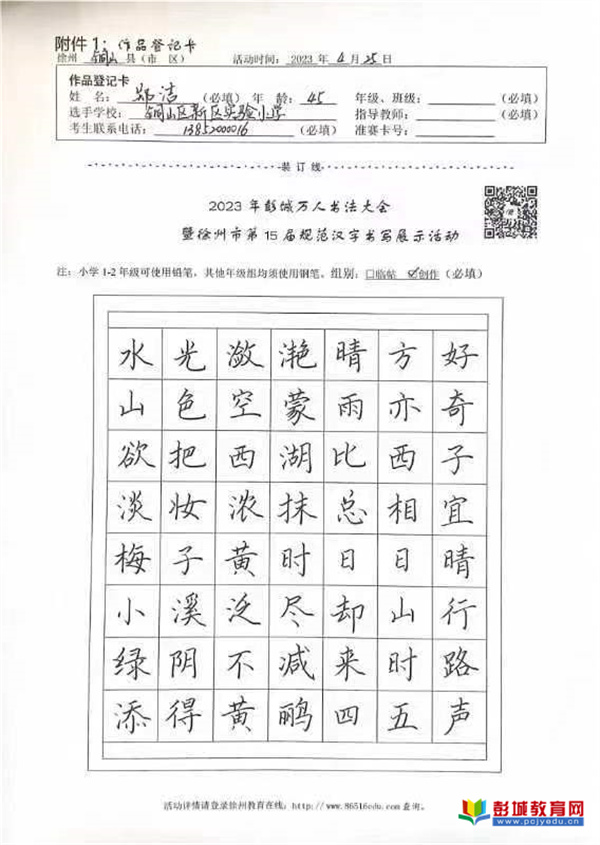 附件1：作品登记卡
徐州 铜山 县（市 区） 活动时间：2023 年 4 月 25 日
作品登记卡
姓 名：郑洁（必填）年 龄：45 年级、班级：（必填）
选手学校：铜山区新区实验小学 指导教师：（必填）
考生联系电话：13852000016（必填）准赛卡号：
装 订 线
2023 年彭城万人书法大会
暨徐州市第 15 届规范汉字书写展示活动
注：小学 1-2 年级可使用铅笔，其他年级组均须使用钢笔。组别：□临帖 ☑创作（必填）
水光潋滟晴方好
山色空蒙雨亦奇
欲把西湖比西子
淡妆浓抹总相宜
梅子黄时日日晴
小溪泛尽却山行
绿阴不减来时路
添得黄鹂四五声
活动详情请登录徐州教育在线：http://www.86516edu.com 查询。
彭城教育网
www.pcjyedu.com